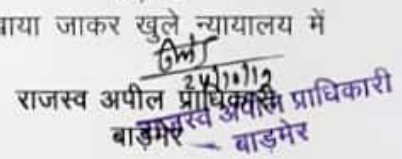 जाकर खुले न्यायालय में
24/10/12
राजस्व अपील प्राधिकारी
बाड़मेर
राजस्व अपील प्राधिकारी
बाड़मेर